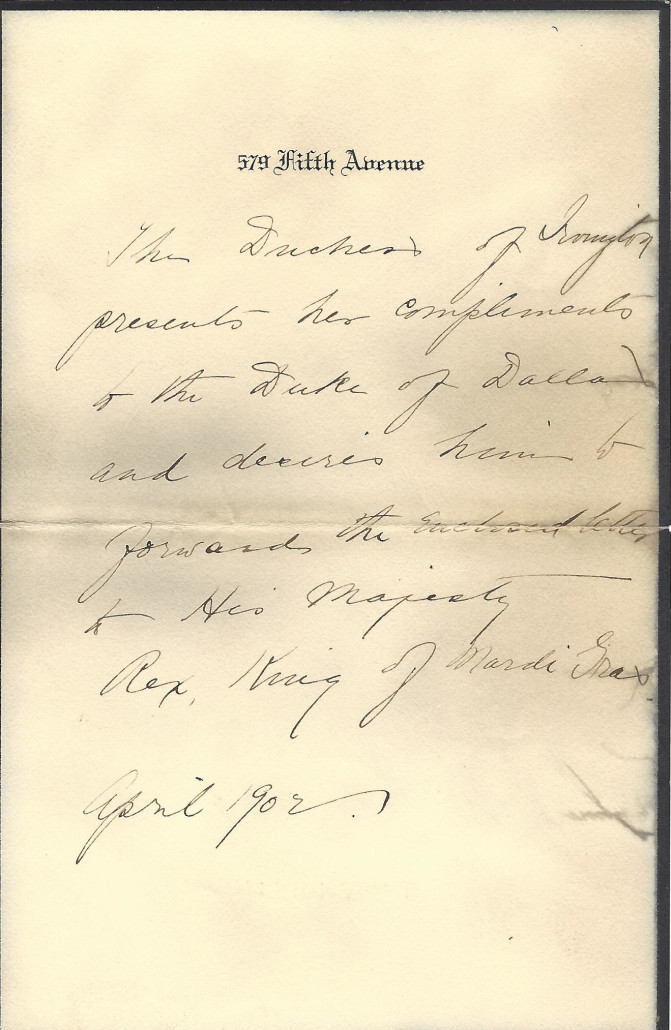 579 Fifth Avenue
The Duchess of Irvington
presents her compliments
to the Duke of Dallas
and desires him to
forwards the enclosed letter
to His Majesty
Rex, King of Mardi Gras.
April 1902.